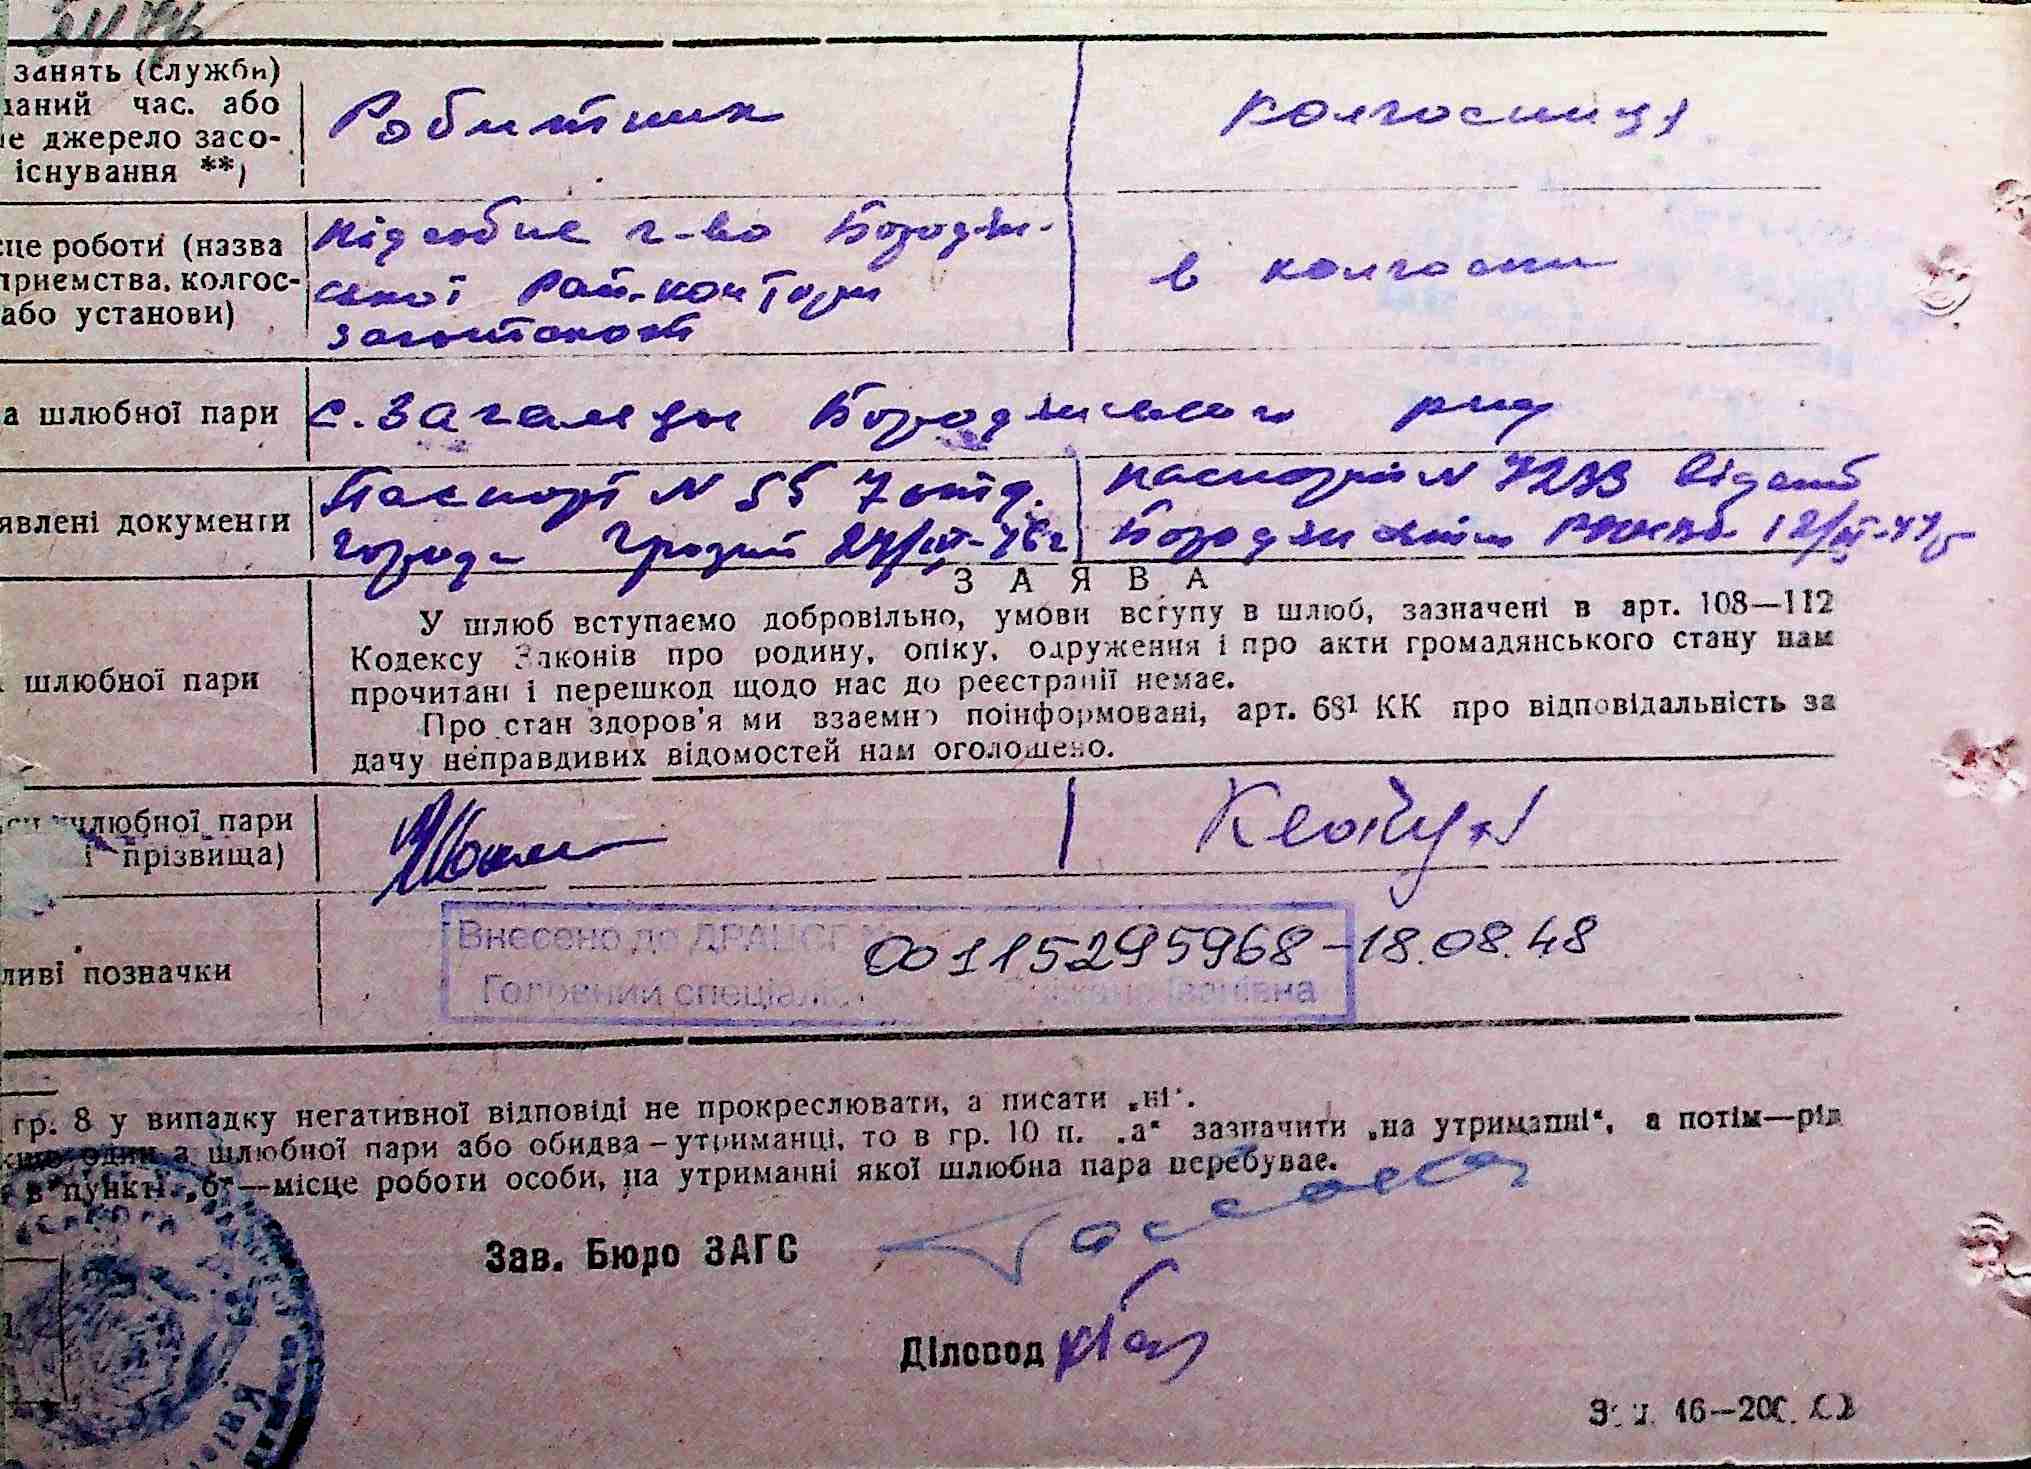 занять (служби)
час. або
джерело засо-
існування **)
Робитник
колгосниця
це роботи (назва
приємства, колгос-
або установи)
Підсобне г-во Бородян-
ської Рай-контори
в колгоспи
а шлюбної пари
с. Загальцы Бородянського р-ну
явлені документи
Паспорт N 55 7 отд.
города Грозний 24/IV-46г
паспорт N 7293 виданий
Бородянским 12/III-47р
ЗАЯВА
шлюбної пари
У шлюб вступаємо добровільно, умови вступу в шлюб, зазначені в арт. 108—112
Кодексу Законів про родину, опіку, одруження і про акти громадянського стану нам
прочитані і перешкод щодо нас до реєстрації немає.
Про стан здоров'я ми взаємно поінформовані, арт. 68¹ КК про відповідальність за
дачу неправдивих відомостей нам оголошено.
шлюбної пари
і прізвища)
ливі позначки
Внесено до ДРАЦСГ
00115295968-18.08.48
Головний спеціаліст Іванівна
гр. 8 у випадку негативної відповіді не прокреслювати, а писати „ні“.
один з шлюбної пари або обидва—утриманці, то в гр. 10 п. „а“ зазначити „на утриманні“, а потім—рід
в пункті „б“—місце роботи особи, на утриманні якої шлюбна пара перебуває.
Зав. Бюро ЗАГС
Діловод
46—200.